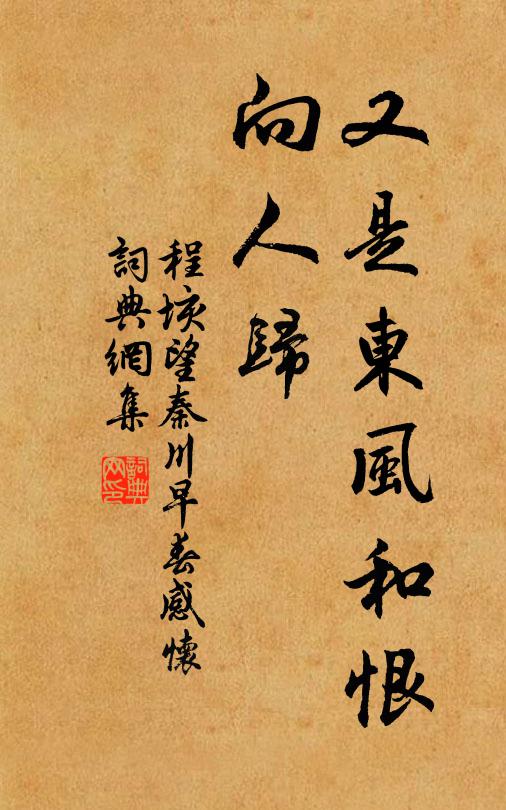 又是東風和恨
向人歸
程垓望秦川早春感懷
詞典網集
詞典
网印